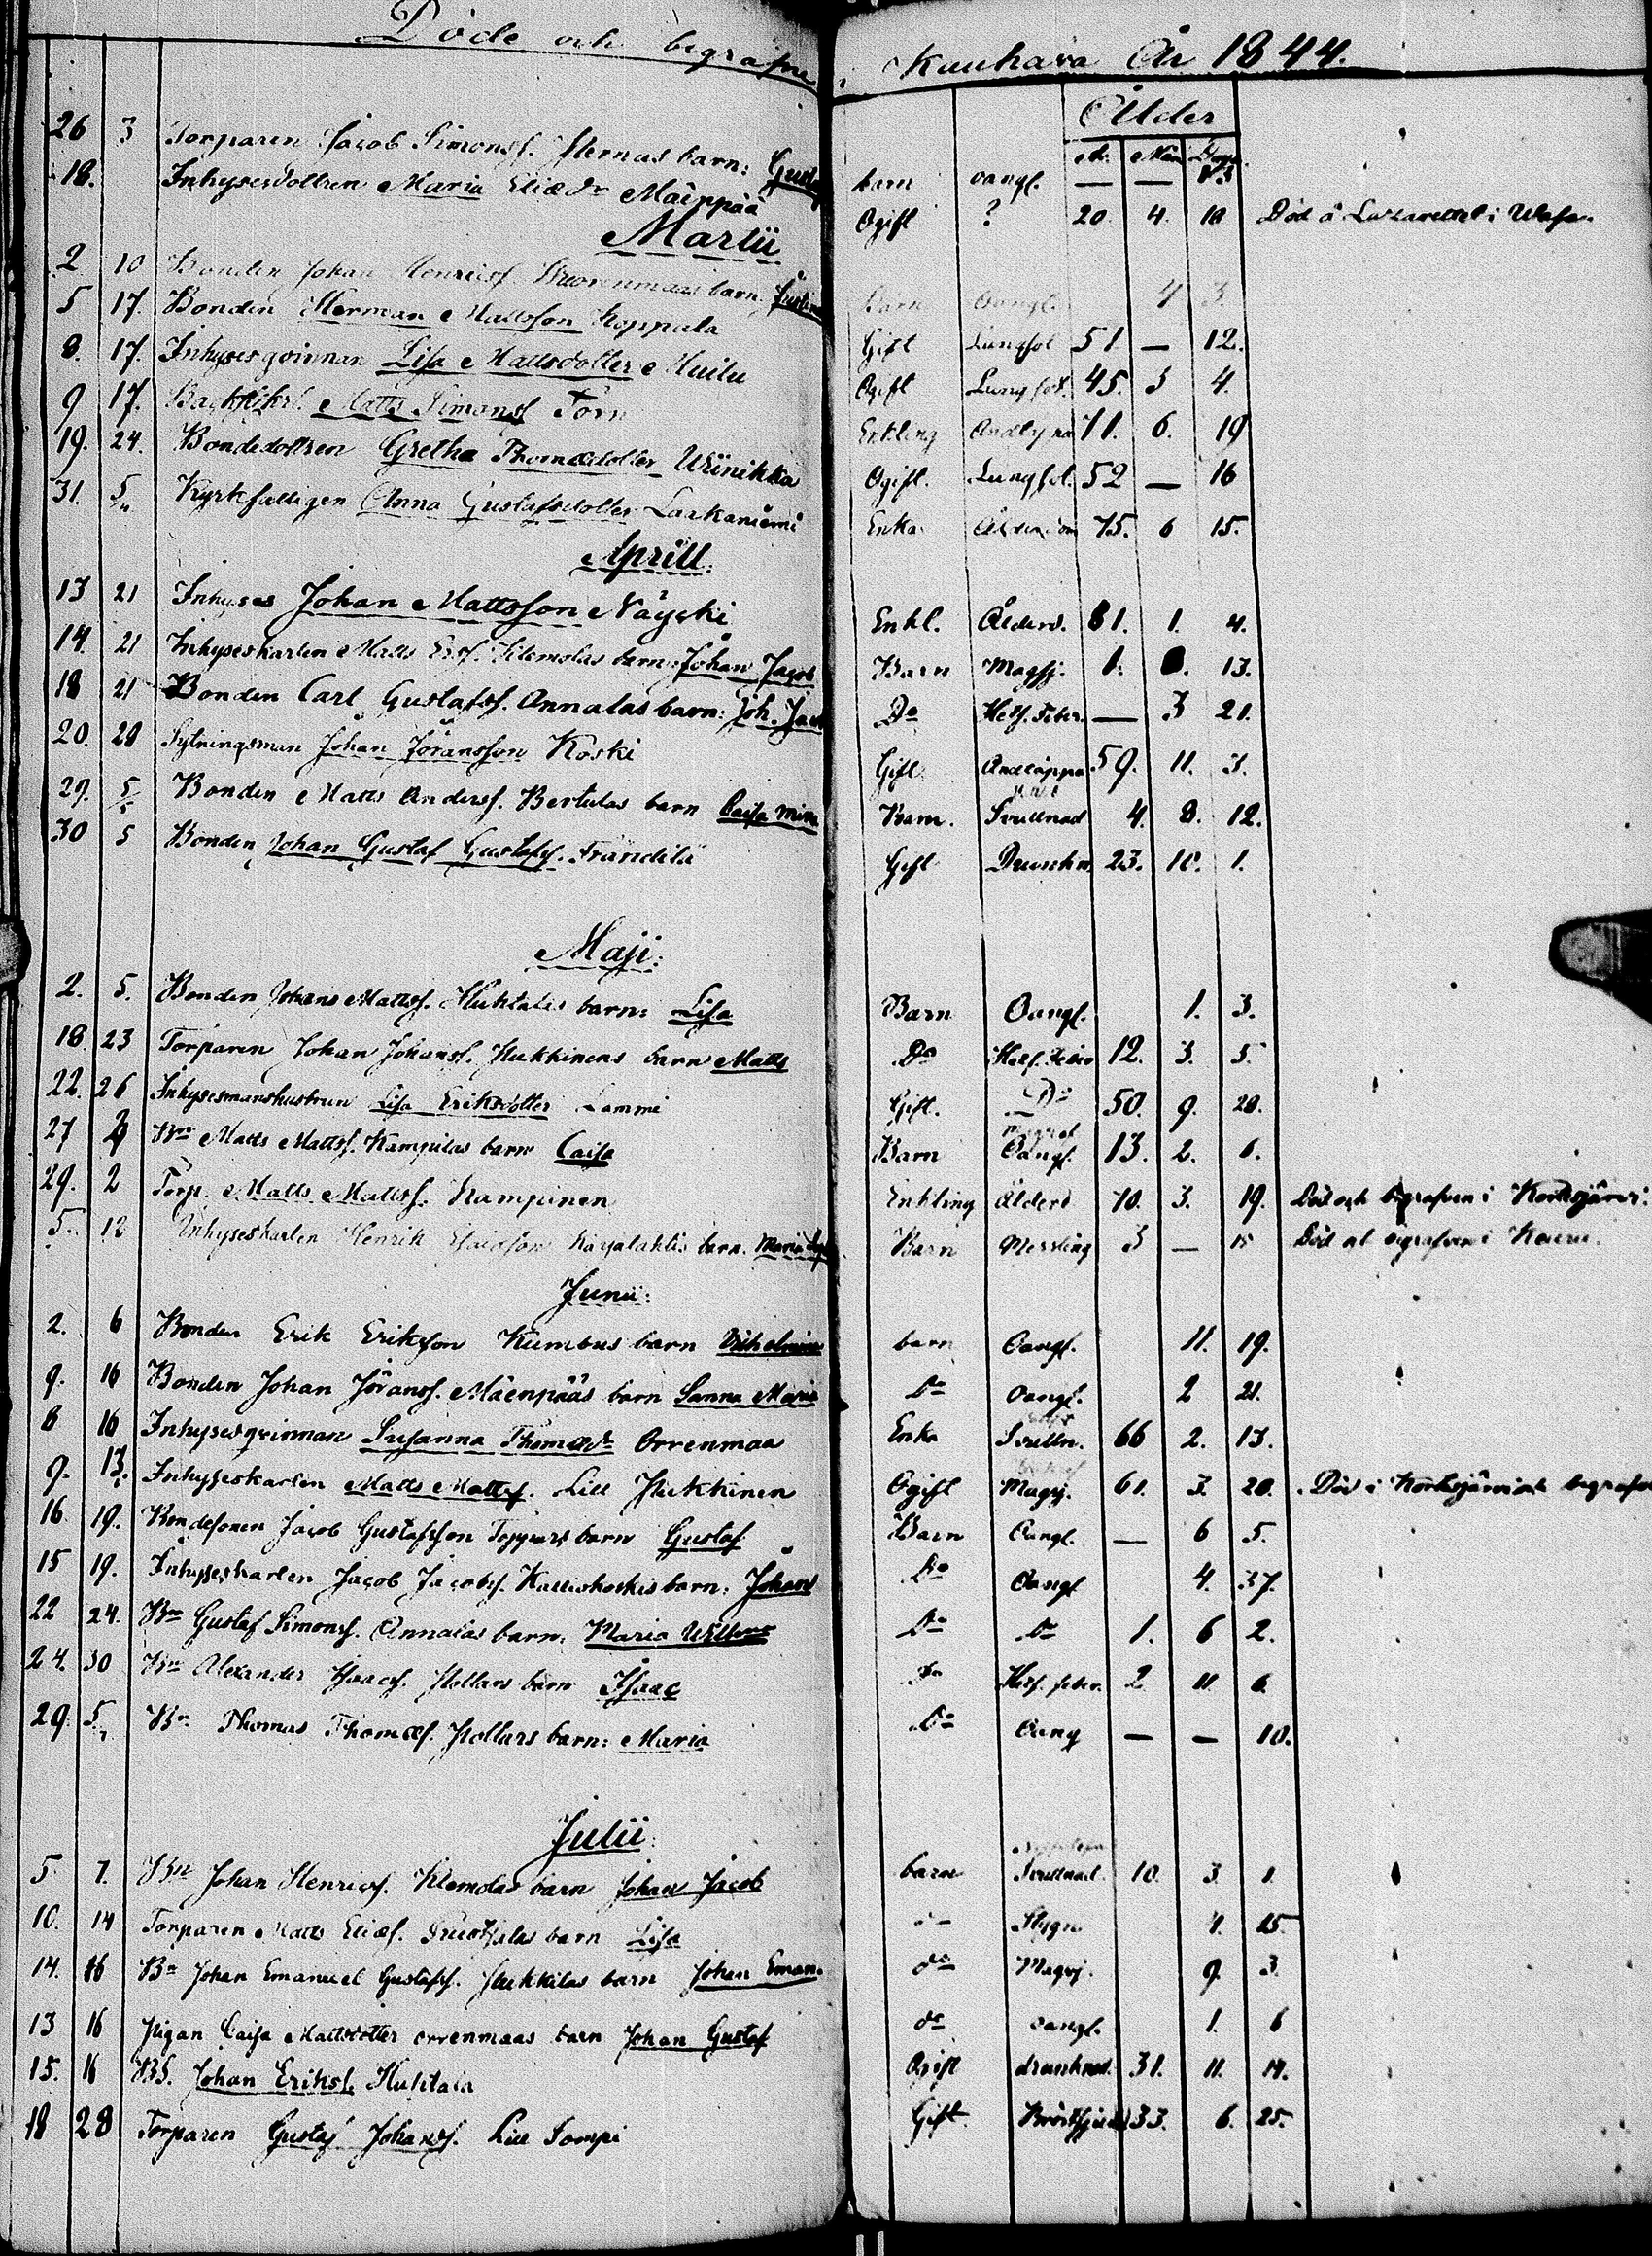 Döde och begrafne i Kauhava År 1844.
Ålder
År. Mån. Dagar
26 3 Torparen Jacob Simonss. barn: barn oangf. — —
18. Inhysesdottren Maria Eliædr Mäenpää Ogift ? 20. 4. 10 Död å Lazarettet i Wasa.
Martii
2 10 Bonden Johan Henricss. barn Barn Oangf. 4 3.
5 17. Bonden Herman Mattsson Koppula Gift Lungsot 51. — 12.
8. 17. Inhysesqvinnan Lisa Mattsdotter Huilu Ogift Lungsot. 45. 3 4.
9 17. Matts Simonss Torn Enkling 71. 6. 19
19. 24. Bondedottren Gretha Thomædotter Wiinikka Ogift. Lungsot. 52 — 16
31. 5/4 Kyrkfattigen Anna Gustafsdotter Laakaniemi Enka Ålderdom 75. 6 15.
Aprill:
13 21 Inhyses Johan Mattsson Näyski Enkl. Ålderd. 81. 1. 4.
14. 21 Inhyseskarlen Matts Ersf. Klemolas barn: Johan Jacob Barn Magsj. 1. 13.
18 21 Bonden Carl Gustafss. Annalas barn: Joh. Jacob Do Hetf. Feber. — 3 21.
20. 28 Sytningsman Johan Jöransson Koski Gift. Andtäppa 59. 11. 3.
29. 5/5 Bonden Matts Anderss. Bertulas barn Caisa Mina Barn. Svullnad 4. 8. 12.
30 5 Bonden Johan Gustaf Gustafss. Fränditä Gift Drunkn. 23. 10. 1.
Maji:
2. 5. Bonden Johans Mattss. Huhtalas barn: Lisa Barn Oangf. 1. 3.
18. 23 Torparen Johan Johanss. Hukkinens barn Matts Do Hetf. Feber 12. 3. 5.
22. 26 Inhysesmanshustrun Lisa Eriksdotter Lammi Gift. Do 50. 9. 20.
27 2 Bn Matts Mattss. Kampilas barn Caisa Barn Oangf. 13. 2. 6.
29. 2 Torp. Matts Mattss. Kampinen Enkling Ålderd 70. 3. 19. Död och begrafven i Kortesjärvi.
5. 12 Inhyseskarlen Henrik Esaiasson Karjalahtis barn. Maria Barn Messling 3 — 15 Död och begrafven i Keuru.
Junii:
2. 6 Bonden Erik Eriksson Kumbus barn Vilhelmina barn Oangf. 11. 19.
9. 16 Bonden Johan Jöranss. Mäenpääs barn Sanna Maria Do Oangf. 2 21.
8 16 Inhysesqvinnan Susanna Thomædr Orrenmaa Enka Svulln. 66 2. 13.
9. 13. Inhyseskarlen Matts Mattss. Lill Hukkinen Ogift Magsj. 61. 3 20. Död i Kortesjärvi och begrafven
16. 19. Bondesonen Jacob Gustafsson Toppars barn Gustaf Barn Oangf. — 6 5.
15 19. Inhyseskarlen Jacob Jacobss. Kalliokoskis barn: Johan Do Oangf 4. 37.
22 24. Bn Gustaf Simonss. Annalas barn. Maria Do Do 1. 6 2.
24. 30 Bn Alexander Isaacs. Pollars barn Isaac Do Hetf. feber. 2. 11. 6.
29. 5/7 Bn Thomas Thomæss. Pollars barn: Maria Do Oang — — 10.
Julii:
5 7. Bn Johan Henricss. Klemolas barn Johan Jacob barn Svullnad. 10. 3. 1.
10. 14 Torparen Matts Eliæs. barn Lisa do Stygn 4. 15
14. 16 Bn Johan Emanuel Gustafss. Hukkilas barn Johan Eman. do Magsj. 9. 3.
13 16 Pigan Caisa Mattsdotter Orrenmaas barn Johan Gustaf do oangf. 1. 6
15. 16 BS. Johan Erikss. Huhtala Ogift drunknad. 31. 11. 14.
18 28 Torparen Gustaf Johanss. Lill Sompi Gift. Bröstsjukd. 33. 6. 25.